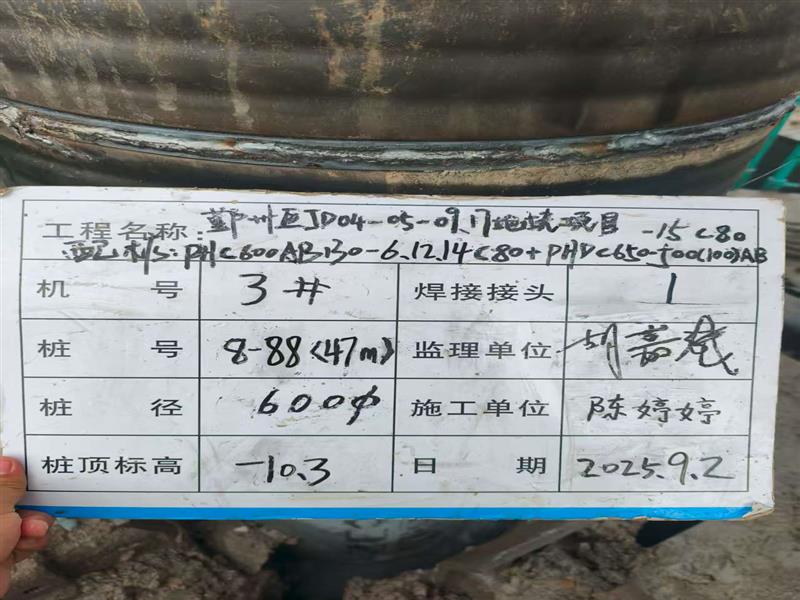 工程名称: 鄞州区JD04-05-09.17地块项目
配桩: PHC600AB130-6.12.14C80+PHDC650-500(100)AB
-15C80
机号 3# 焊接接头 1
桩号 8-88(47m) 监理单位 胡嘉
桩径 600ф 施工单位 陈婷婷
桩顶标高 -10.3 日期 2025.9.2